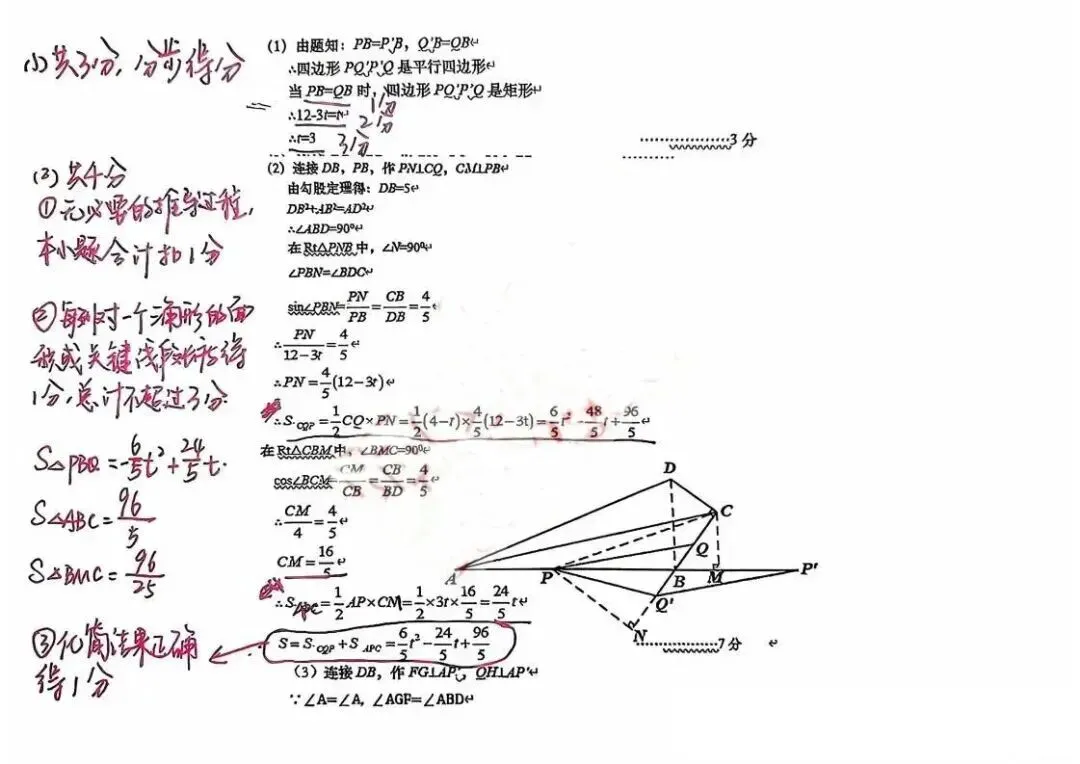 (1)共3分,1分步得1分
(1) 由题知：PB=P'B，Q'B=QB
∴四边形 PQ'P'Q 是平行四边形
当 PB=QB 时，四边形 PQ'P'Q 是矩形
1分
∴12-3t=t
2分
∴t=3
3分
3 分
(2)共4分
①无必要的推导过程,
本小题合计扣1分
②每列对一个三角形的面
积或关键线段
得
1分,总计不超过3分
S△PBQ=-6/5t²+24/5t.
S△ABC=96/5
S△BMC=96/25
③化简结果正确
得1分
(2) 连接 DB，PB，作 PN⊥CQ，CM⊥PB
由勾股定理得：DB=5
DB²+AB²=AD²
∴∠ABD=90°
在 Rt△PNB 中，∠N=90°
∠PBN=∠BDC
sin∠PBN=PN/PB=CB/DB=4/5
∴PN/(12-3t)=4/5
∴PN=4/5(12-3t)
∴S CQP=1/2CQ×PN=1/2(4-t)×4/5(12-3t)=6/5t²-48/5t+96/5
在 Rt△CBM 中，∠BMC=90°
cos∠BCM=CM/CB=CB/BD=4/5
∴CM/4=4/5
CM=16/5
∴S APC=1/2AP×CM=1/2×3t×16/5=24/5t
S=S CQP+S APC=6/5t²-24/5t+96/5
7 分
(3) 连接 DB，作 FG⊥AP'，QH⊥AP'
∵∠A=∠A，∠AGF=∠ABD
D
C
Q
A
P
B
M
P'
Q'
N